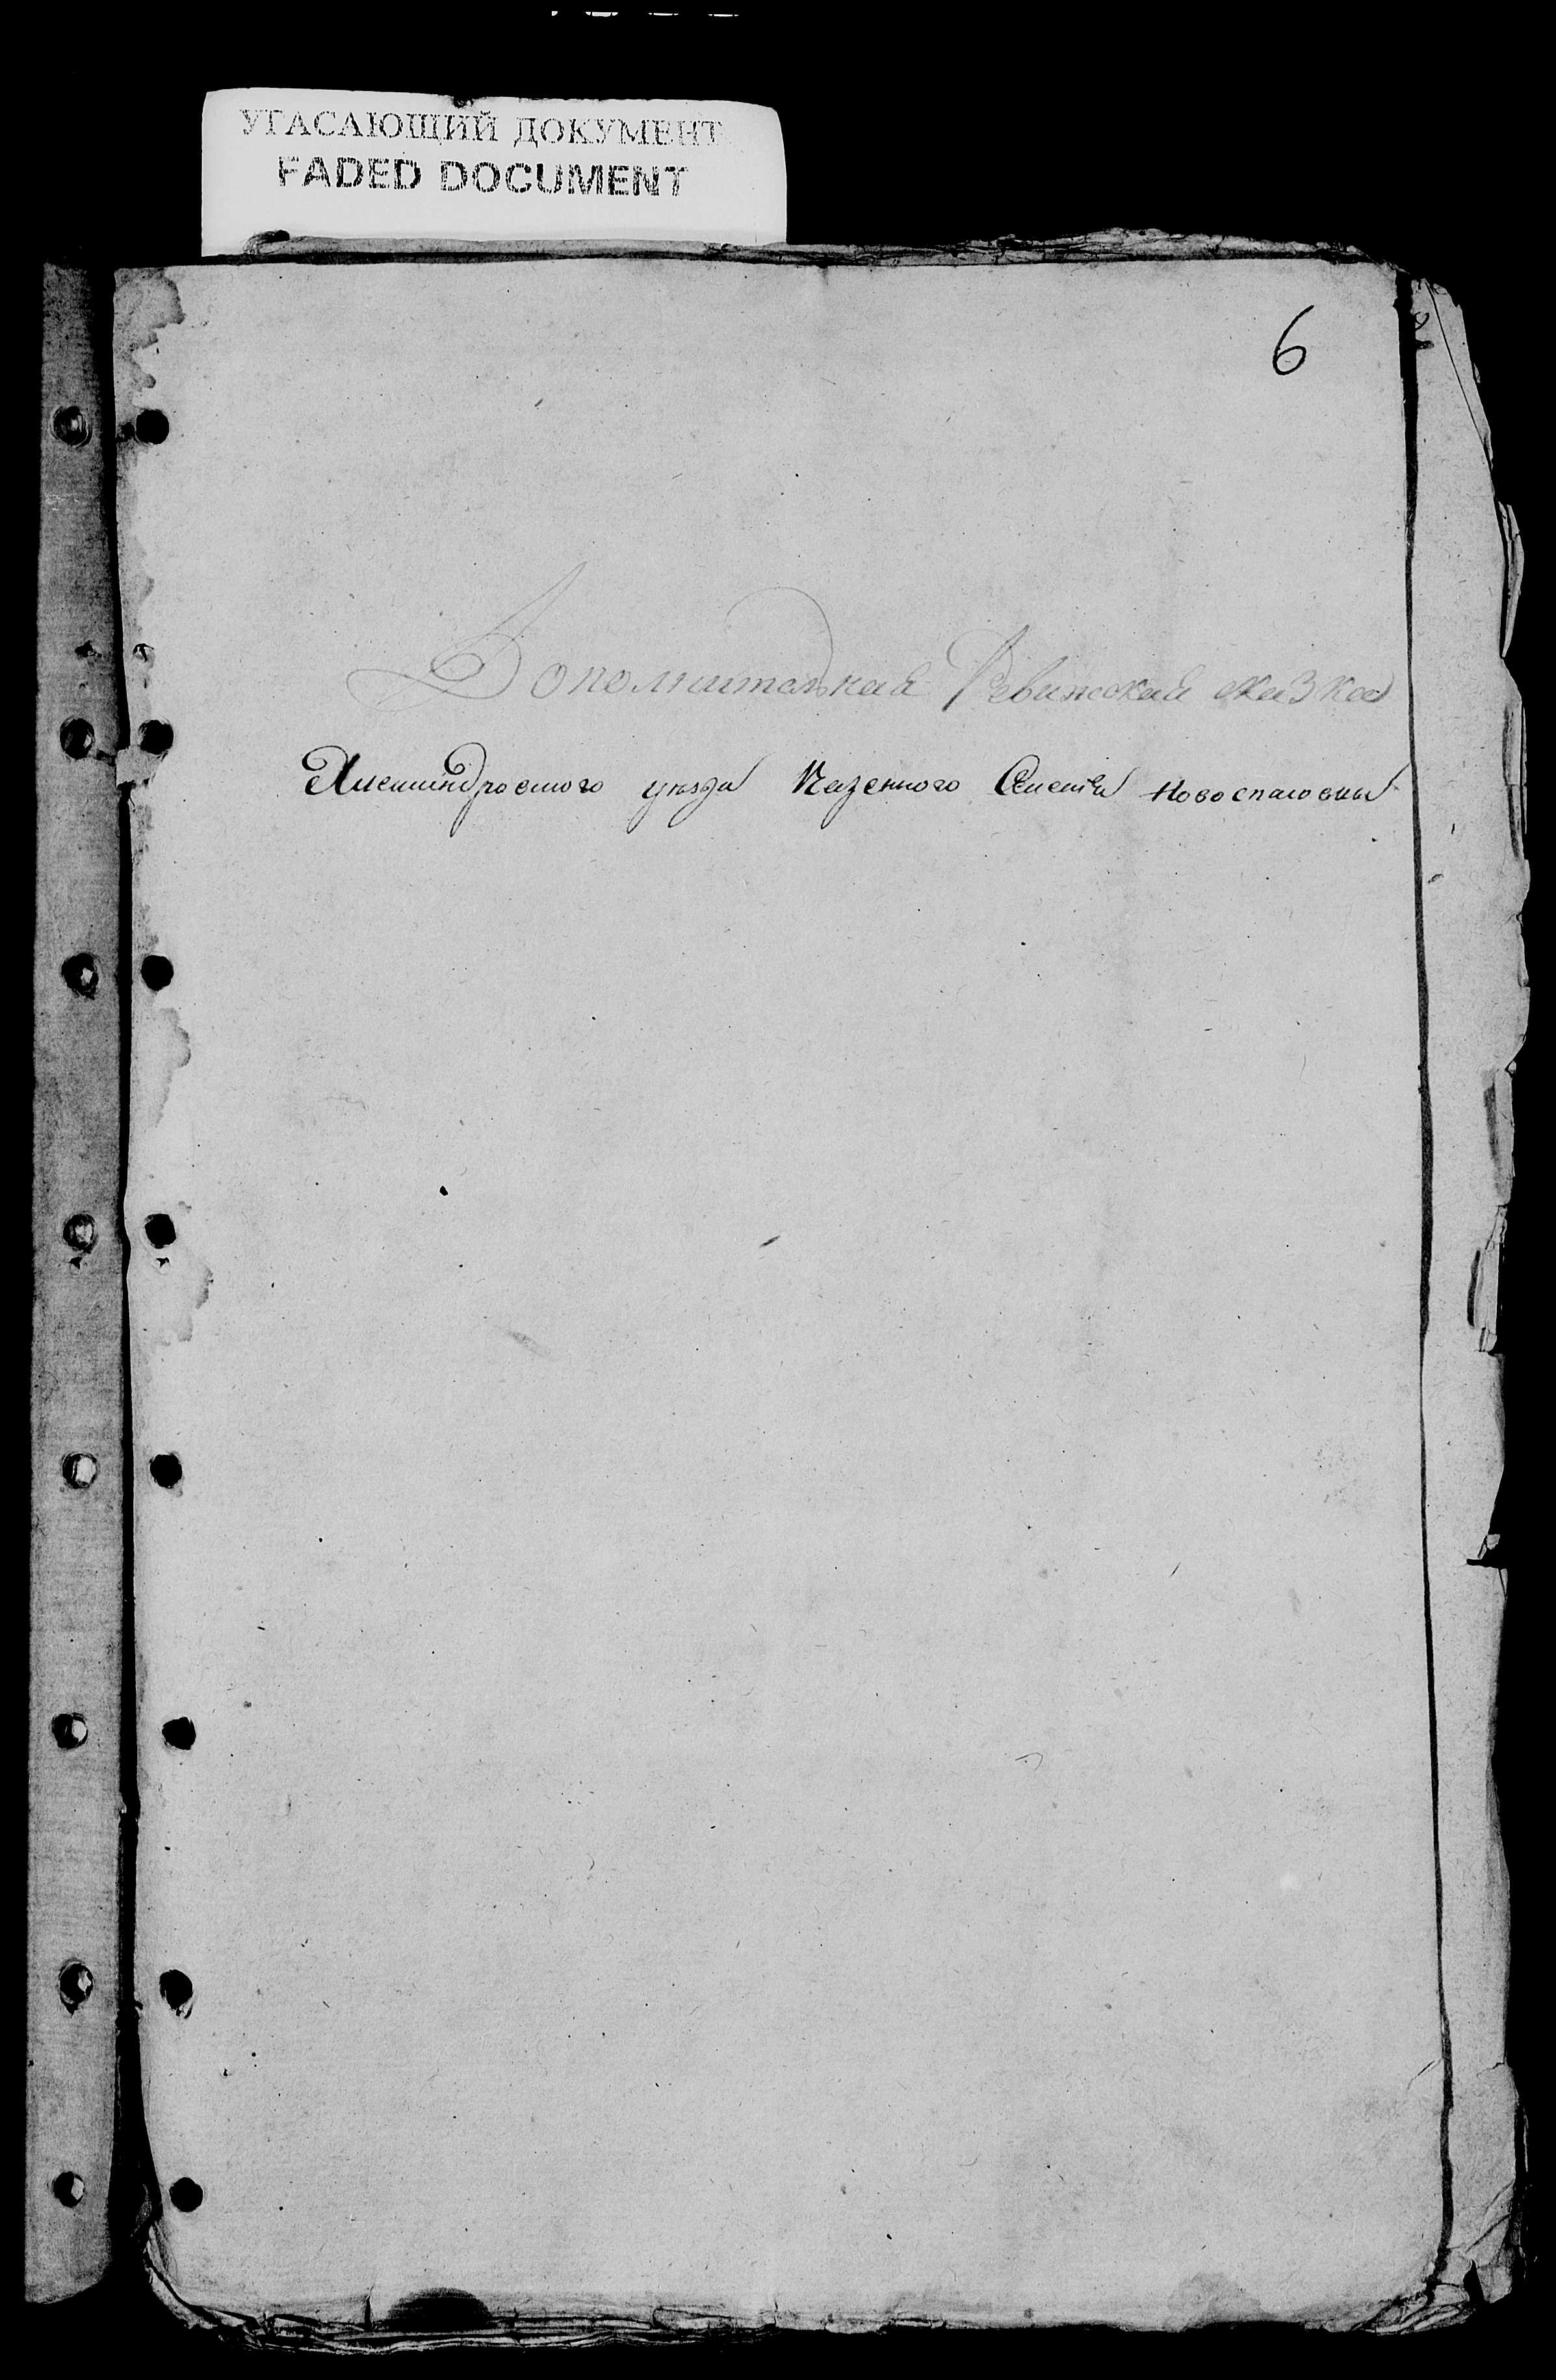 УГАСАЮЩИЙ ДОКУМЕНТ
FADED DOCUMENT
6
Дополнительная Ревижская сказка
Александровского уезда Казенного Селения Новоспасовки